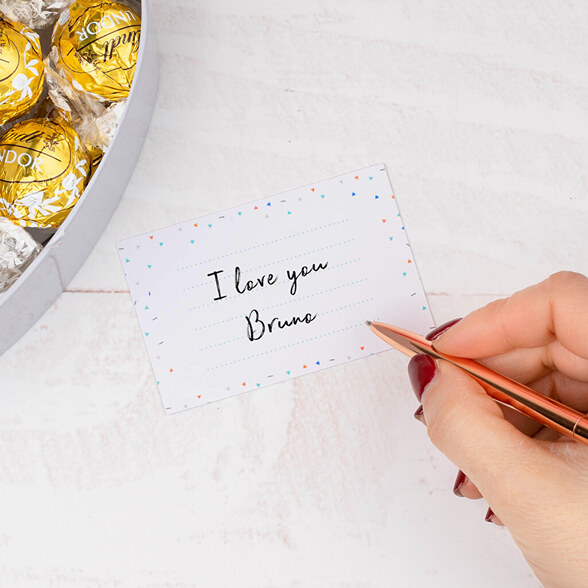 Lindt
LINDOR
Lindt
LINDOR
I love you
Bruno